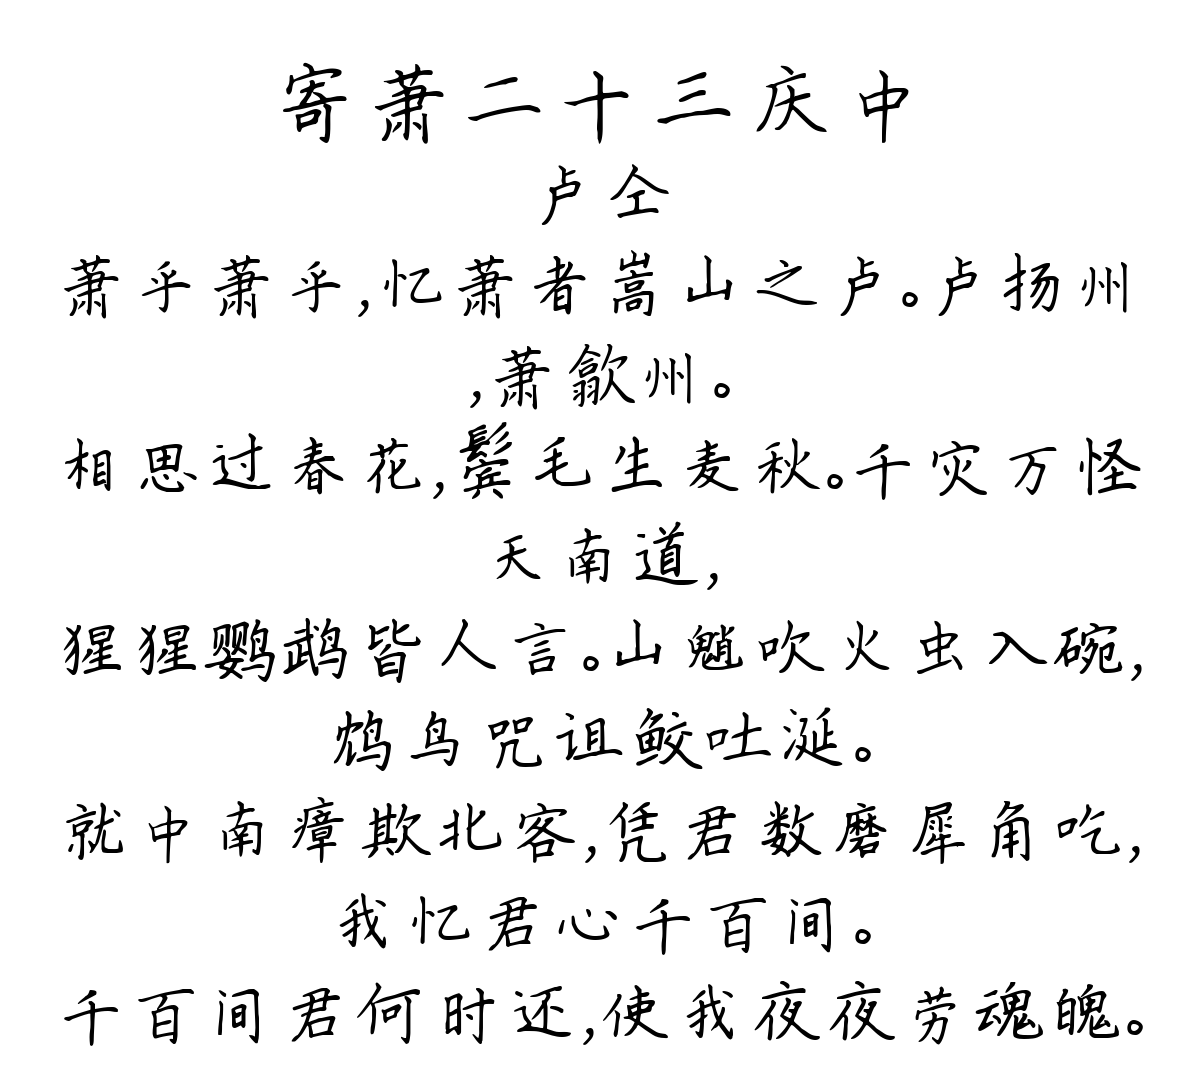 寄萧二十三庆中
卢仝
萧乎萧乎,忆萧者嵩山之卢。卢扬州
,萧歙州。
相思过春花,鬓毛生麦秋。千灾万怪
天南道,
猩猩鹦鹉皆人言。山魈吹火虫入碗,
鸩鸟咒诅鲛吐涎。
就中南瘴欺北客,凭君数磨犀角吃,
我忆君心千百间。
千百间君何时还,使我夜夜劳魂魄。